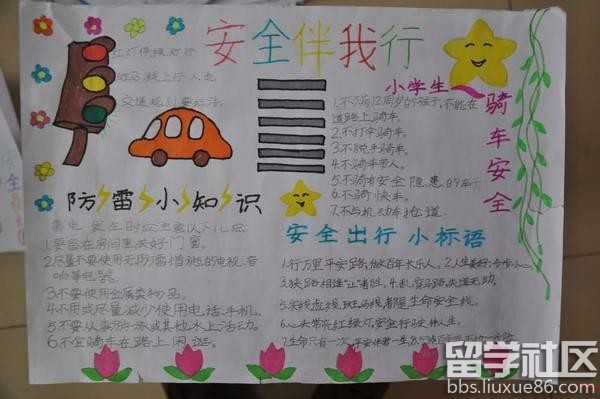 安全伴我行
红灯停绿灯行
斑马线上行人走
交通规则要记清
小学生
骑车安全
1.不满12周岁的孩子,不能在
道路上骑车.
2.不打伞骑车.
3.不脱手骑车.
4.不骑车带人.
5.不骑有安全隐患的车子
6.不骑快车.
7.不与机动车抢道
防雷小知识
雷电发生时应注意以下几点:
1.要留在房间里,关好门窗.
2.尽量不要使用无防雷措施的电视、音
响等电器.
3.不要使用金属类物品.
4.不用或尽量减少使用电话、手机.
5.不要从事游泳或其他水上活动.
6.不宜骑车在路上闲逛.
安全出行小标语
1.行万里平安路,做百年长乐人.
2.人生美好,步步小心.
3.狭路相逢"让"者胜.
4.乱穿马路,失道无助.
5.实线虚线斑马线都是生命安全线.
6.心头常亮红绿灯,安全行驶
7.生命只有一次,平安伴君一生
留学社区
bbs.liuxue86.com